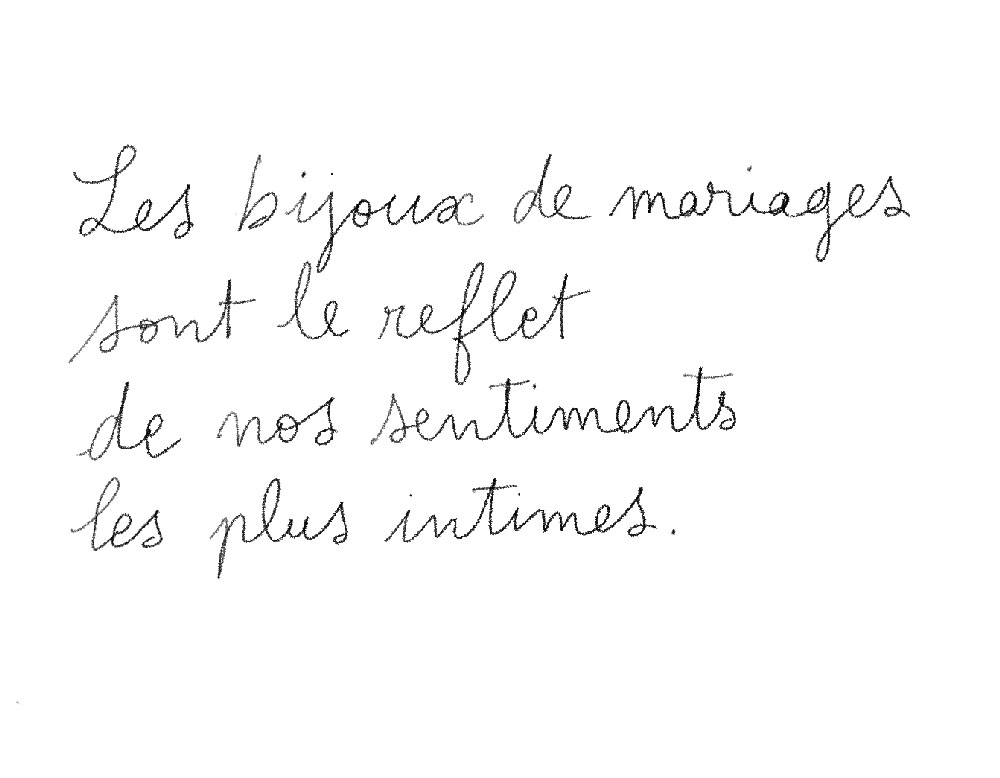 Les bijoux de mariages
sont le reflet
de nos sentiments
les plus intimes.